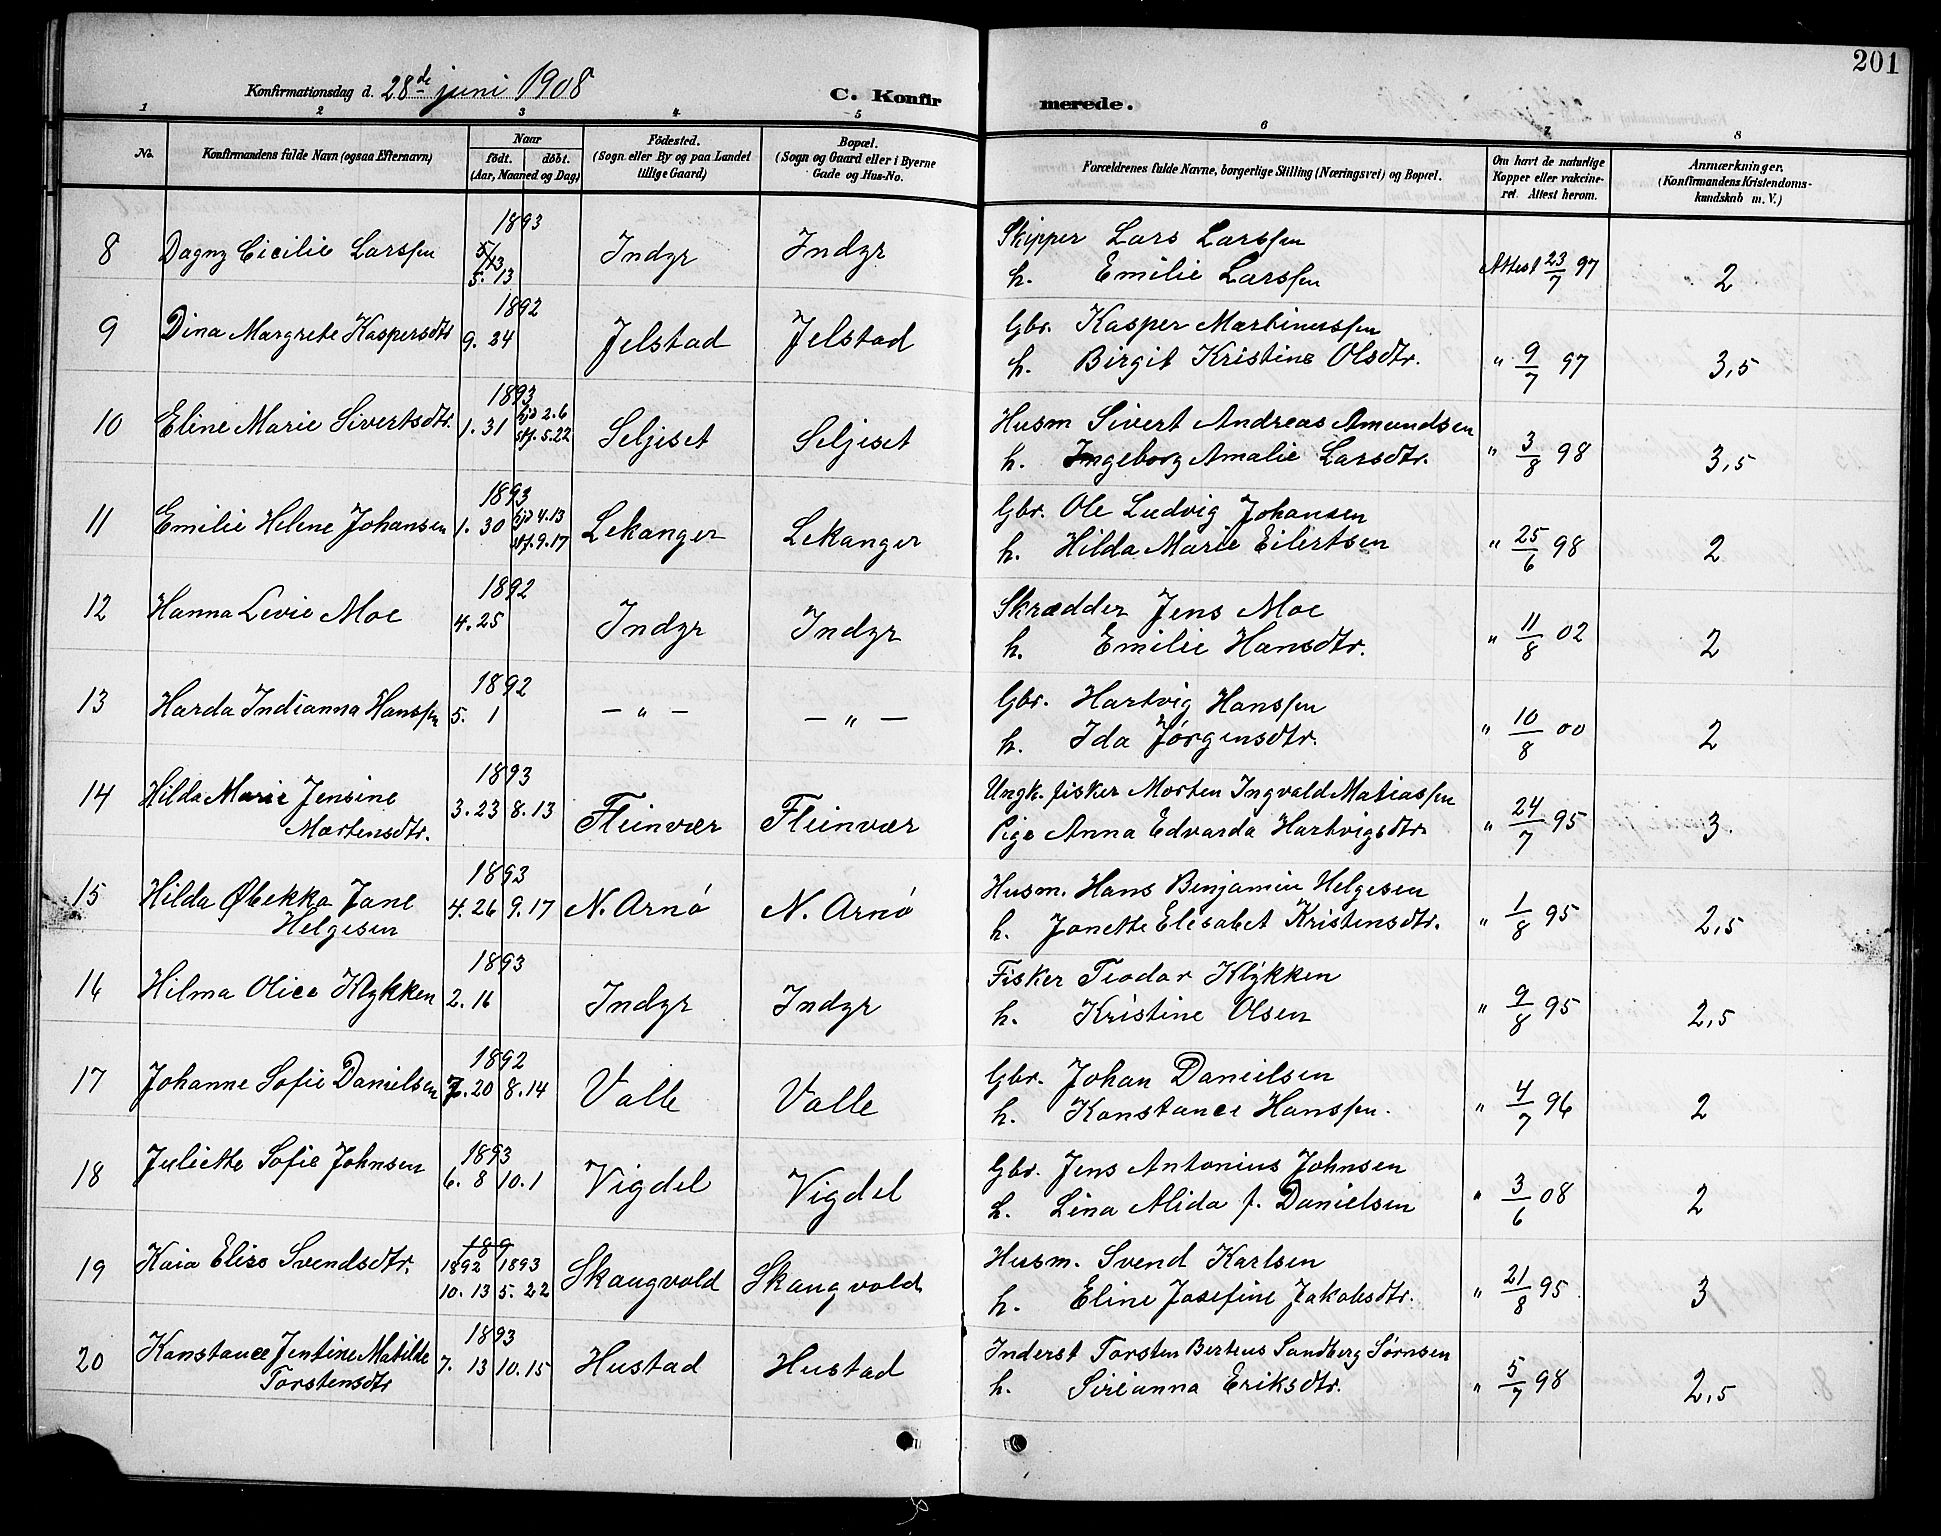 201
Konfirmationsdag d. 28de juni 1908 C. Konfir merede.
1 2 3 4 5 6 7 8
No. Konfirmandens fulde Navn (ogsaa Efternavn) Naar født. døbt. (Aar, Maaned og Dag) Fødested. (Sogn eller By og paa Landet tillige Gaard) Bopæl. (Sogn og Gaard eller i Byerne Gade og Hus-No. Forældrenes fulde Navne, borgerlige Stilling (Næringsvei) og Bopæl. Om havt de naturlige Kopper eller vakcineret. Attest herom. Anmærkninger. (Konfirmandens Kristendomskundskab m. V.)
1893
8 Dagny Cicilie Larssen 5. 13 Indyr Indyr Skipper Lars Larssen
h. Emilie Larssen Attest 23/7 97 2
1892
9 Dina Margrete Kaspersdtr 9. 24 Jelstad Jelstad Gbr. Kasper Martinussen
h. Birgit Kristine Olsdtr. " 9/7 97 3,5
1893
10 Eline Marie Sivertsdtr. 1. 31 hjd 2.6 stf. 5.22 Seljeset Seljeset Husm Sivert Andreas Amundsen
h. Ingeborg Amalie Larsdtr. " 3/8 98 3,5
1893
11 Emilie Helene Johansen 1. 30 hjd 4.13 stf. 9.17 Lekanger Lekanger Gbr. Ole Ludvig Johansen
h. Hilda Marie Eilertsen " 25/6 98 2
1892
12 Hanna Levie Moe 4. 25 Indyr Indyr Skrædder Jens Moe
h. Emilie Hansdtr. " 11/8 02 2
1892
13 Harda Indianna Hanssen 5. 1 — " — — " — Gbr. Hartvig Hanssen
h. Ida Jørgensdtr. " 10/8 00 2
1893
14 Hilda Marie Jensine 3. 23 8. 13 Fleinvær Fleinvær Ungk. fisker Morten Ingvald Matiassen
Martensdtr. Pige Anna Edvarda Hartvigsdtr " 24/7 95 3
1893
15 Hilda Øbekka Jane 4. 26 9. 17 N. Arnø N. Arnø Husm. Hans Benjamin Helgesen
Helgesen h. Janette Elesabet Kristensdtr. " 1/8 95 2,5
1893
16 Hilma Olice Klykken 2. 16 Indyr Indyr Fisker Teodor Klykken
h. Kristine Olsen " 9/8 95 2,5
1892
17 Johanne Sofie Danielsen 7. 20 8. 14 Valle Valle Gbr. Johan Danielsen
h. Konstance Hanssen. " 4/7 96 2
1893
18 Juliette Sofie Johnsen 6. 8 10. 1 Vigdel Vigdel Gbr. Jens Antonius Johnsen
h. Lina Alida f. Danielsen " 3/6 08 2
189
19 Kaia Elise Svendsdtr. 1892 10. 13 1893 5. 22 Skaugvold Skaugvold Husm. Svend Karlsen
h. Eline Josefine Jakobsdtr. " 21/8 95 3
1893
20 Konstance Jentine Matilde 7. 13 10. 15 Hustad Hustad Inderst Torsten Berteus Sandberg Sørnsen
Torstensdtr h. Sirianna Eriksdtr. " 5/7 98 2,5